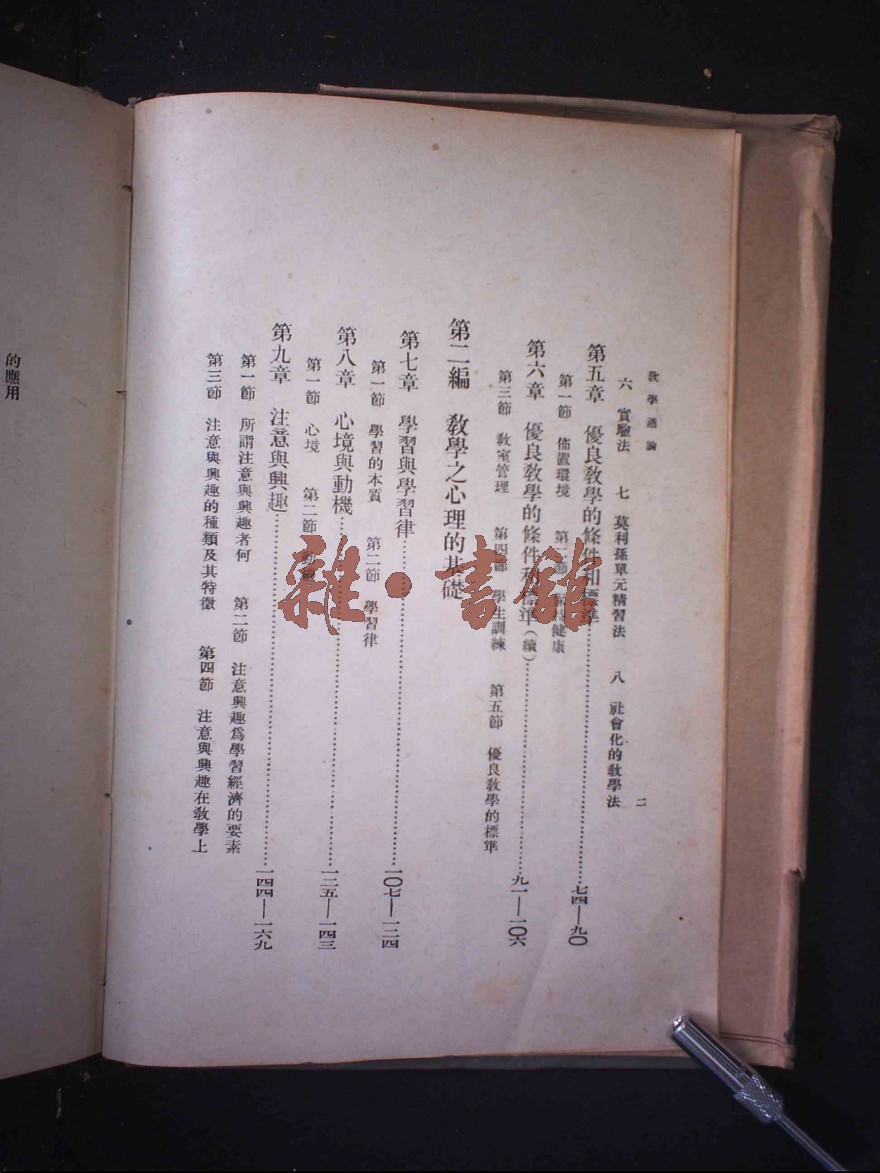 教學通論
二
六 實驗法 七 莫利孫單元精習法 八 社會化的教學法
第五章 優良教學的條件和標準……七四—九〇
第一節 佈置環境 第二節 健康
第六章 優良教學的條件和標準（續）……九一—一〇六
第三節 教室管理 第四節 學生訓練 第五節 優良教學的標準
第二編 教學之心理的基礎
第七章 學習與學習律……一〇七—一二四
第一節 學習的本質 第二節 學習律
第八章 心境與動機……一二五—一四三
第一節 心境 第二節 動機
第九章 注意與興趣……一四四—一六九
第一節 所謂注意與興趣者何 第二節 注意興趣爲學習經濟的要素
第三節 注意與興趣的種類及其特徵 第四節 注意與興趣在教學上
的應用
雜·書館